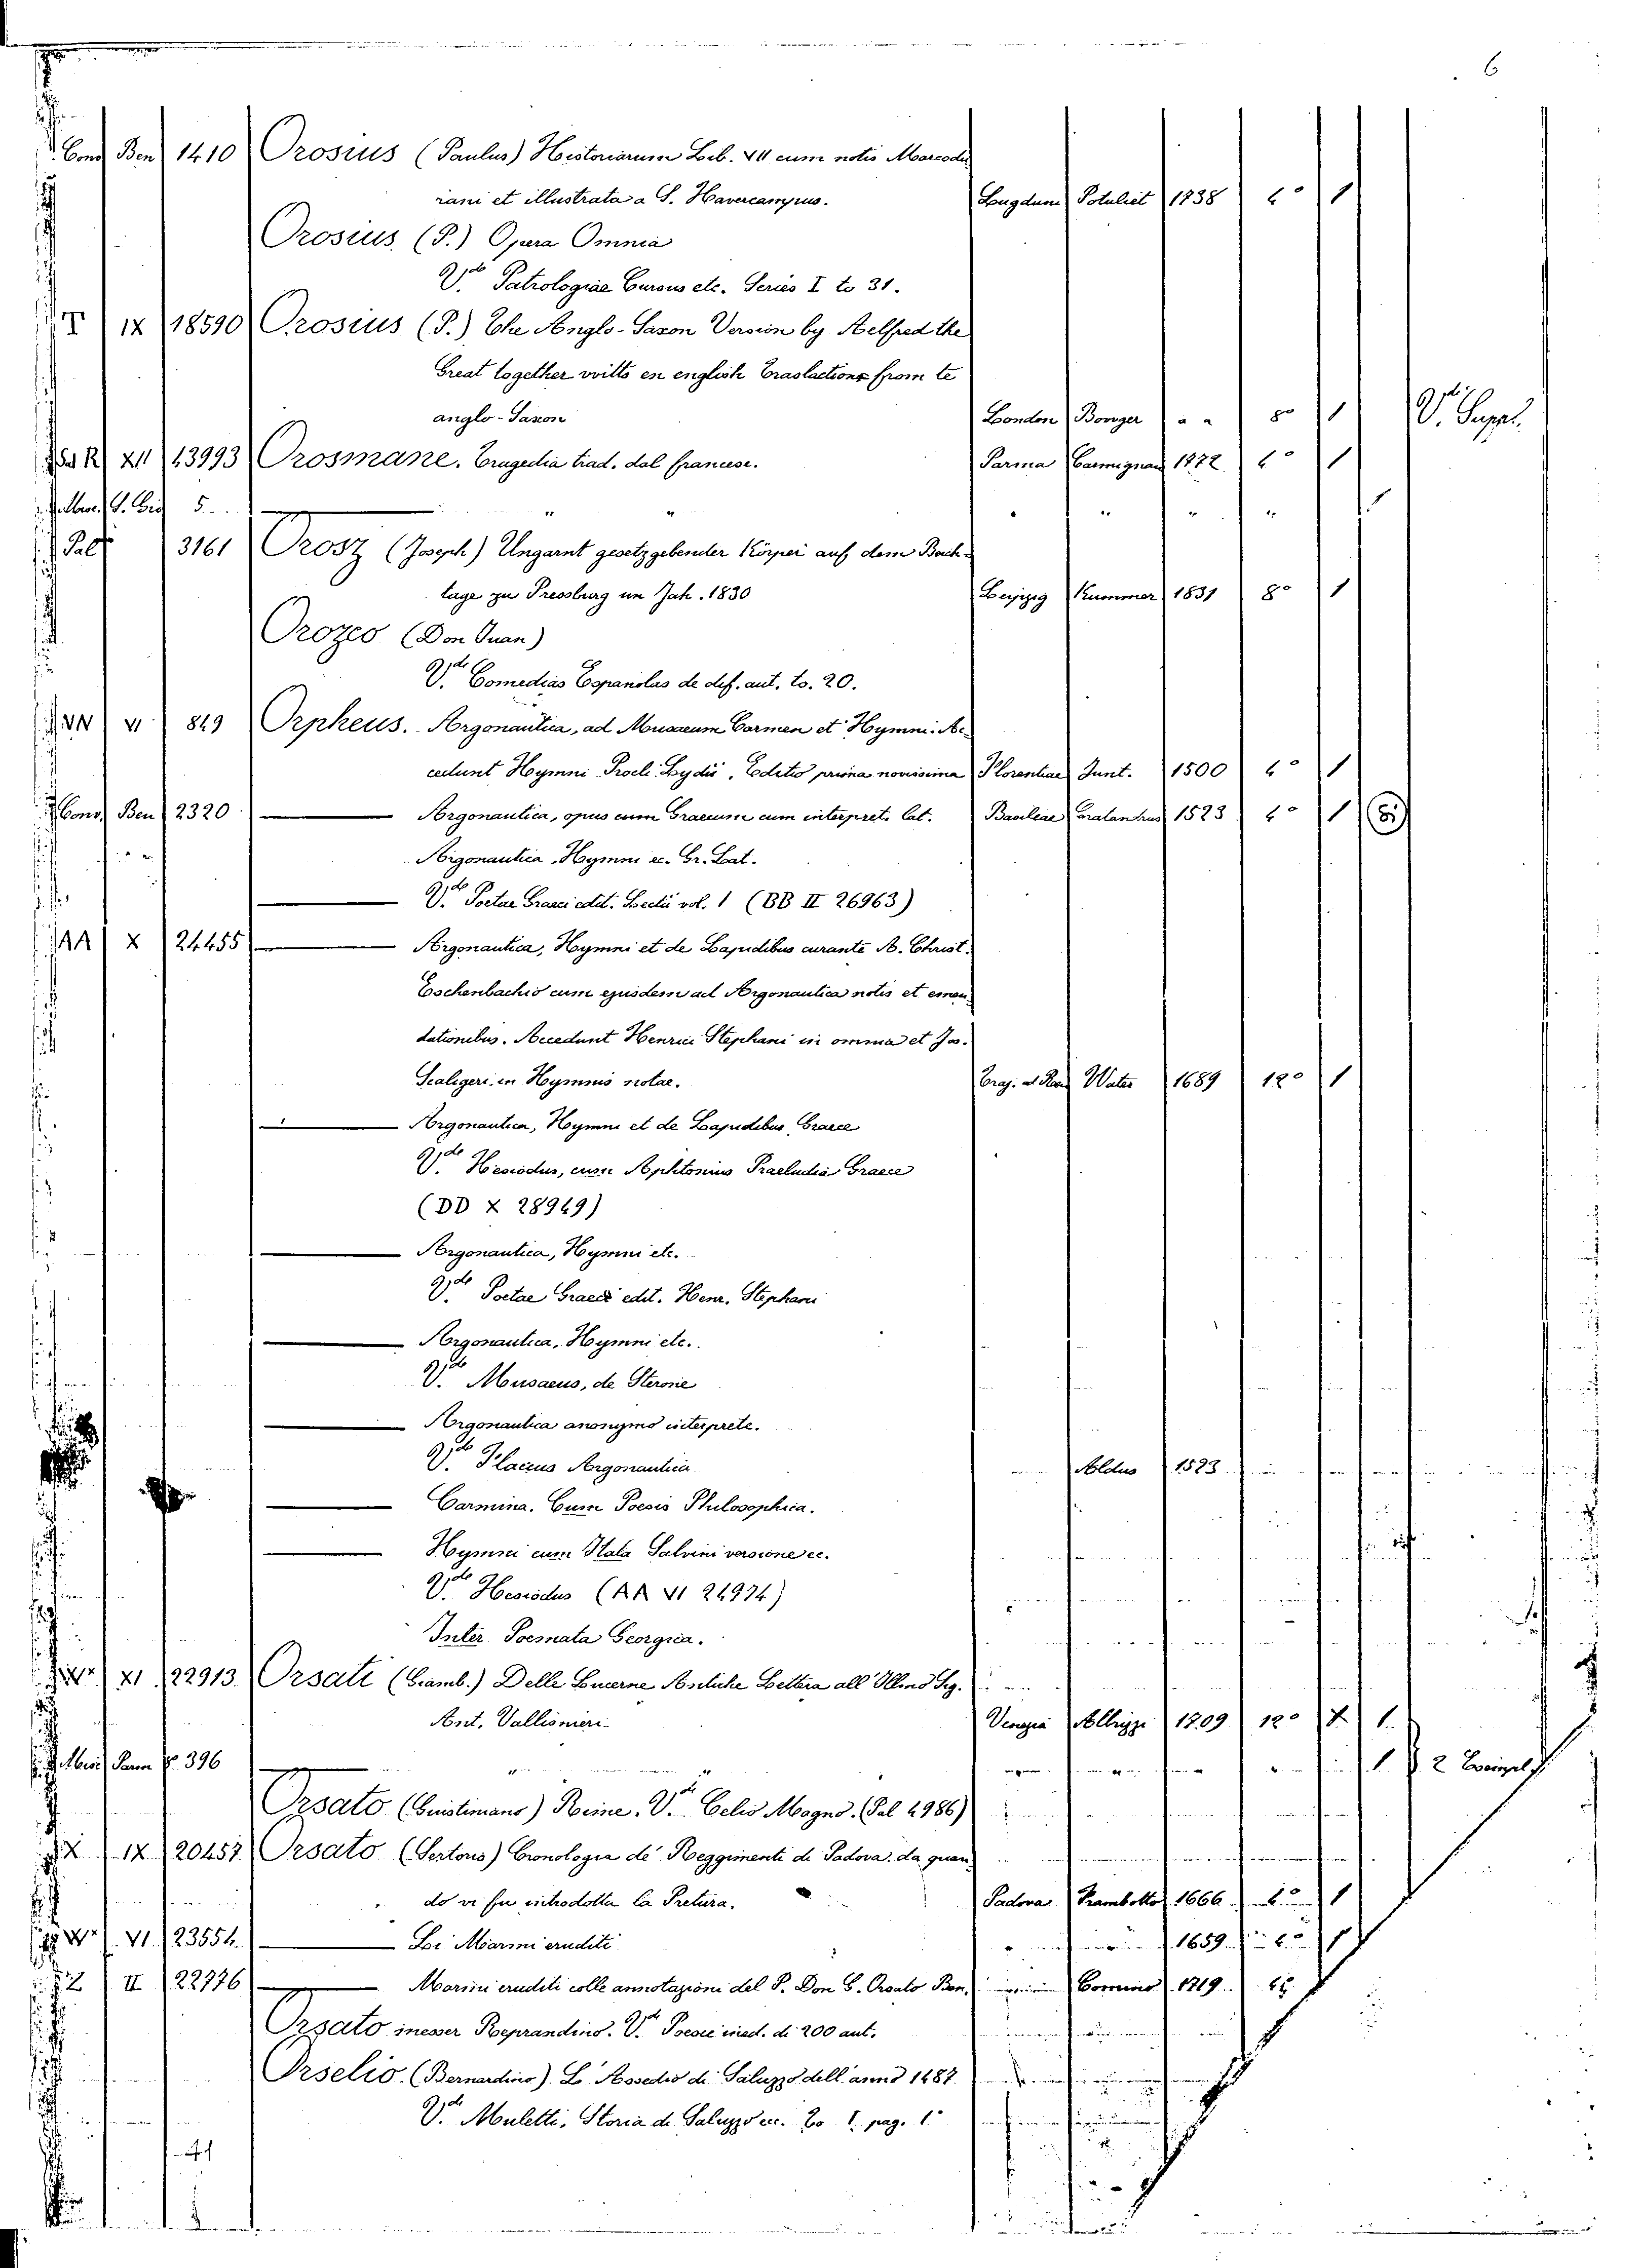 6
Cons Ben 1410 Orosius (Paulus) Historiarum Lib. VII cum notis Marcodu
rani et illustrata a S. Havercampus. Lugduni Potuliet 1738 4° 1
Orosius (P.) Opera Omnia
V.de Patrologiae Cursus etc. Series I to 31.
T IX 18590 Orosius (P.) The Anglo-Saxon Version by Aelfred the
Great together with en english Traslactions from te
anglo-Saxon London Bowyer " " 8° 1 V. Suppl.
XII 13993 Orosmane. Tragedia trad. dal francese. Parma Carmignani 1772 4° 1
5 " " " " " " 1
Pal 3161 Orosz (Joseph) Ungarnt gesetzgebender Körper auf dem Bach-
tage zu Pressburg un Jah. 1830 Leipzig Kummer 1831 8° 1
Orozco (Don Juan)
V.de Comedias Espanolas de dif. aut. to. 20.
VI 849 Orpheus. Argonautica, ad Musaeum Carmen et Hymni. Ac-
cedunt Hymni Procli Lydii. Editio prima novissima Florentiae Junt. 1500 4° 1
Cons Ben 2320 Argonautica, opus cum Graecum cum interpret. lat. Basileae Cratandrus 1523 4° 1
Argonautica, Hymni ec. Gr. Lat.
V.de Poetae Graeci edit. Lectii vol. 1 (BB II 26963)
AA X 24455 Argonautica, Hymni et de Lapidibus curante A. Christ.
Eschenbachio cum ejusdem ad Argonautica notis et emen-
dationibus. Accedunt Henrici Stephani in omnia et Jos.
Scaligeri in Hymnis notae. Traj. ad Rhen Water 1689 12° 1
Argonautica, Hymni et de Lapidibus, Graece
V.de Hesiodus, cum Aphtonius Praeludia Graece
(DD X 28949)
Argonautica, Hymni etc.
V.de Poetae Graeci edit. Henr. Stephani
Argonautica, Hymni etc.
V.de Musaeus, de Sterone
Argonautica anonymo interprete.
V.de Flaccus Argonautica Aldus 1523
Carmina. Cum Poesis Philosophica.
Hymni cum Itala Salvini versione ec.
V.de Hesiodus (AA VI 24974)
Inter Poemata Georgica.
XI 22913 Orsati (Giamb.) Delle Lucerne Antiche Lettera all Illmo Sig.
Ant. Vallisnieri Venezia Albrizzi 1709 12° 1
396 " " " " 1 2 Esempl.
Orsato (Giustiniano) Rime. V.de Celio Magno. (Pal 4986)
X IX 20457 Orsato (Sertorio) Cronologia de' Reggimenti di Padova. da quan-
do vi fu introdotta la Pretura. Padova Frambotto 1666 4° 1
VI 23554 Li Marmi eruditi " " 1659 4° 1
II 22776 Marmi eruditi colle annotazioni del P. Don G. Orsato Ben. " Comino 1719 4°
Orsato messer Reprandino. V.de Poesie ined. di 200 aut.
Orselio (Bernardino) L'Assedio di Saluzzo dell'anno 1487.
V.de Muletti, Storia di Saluzzo ec. To. 1. pag. 1